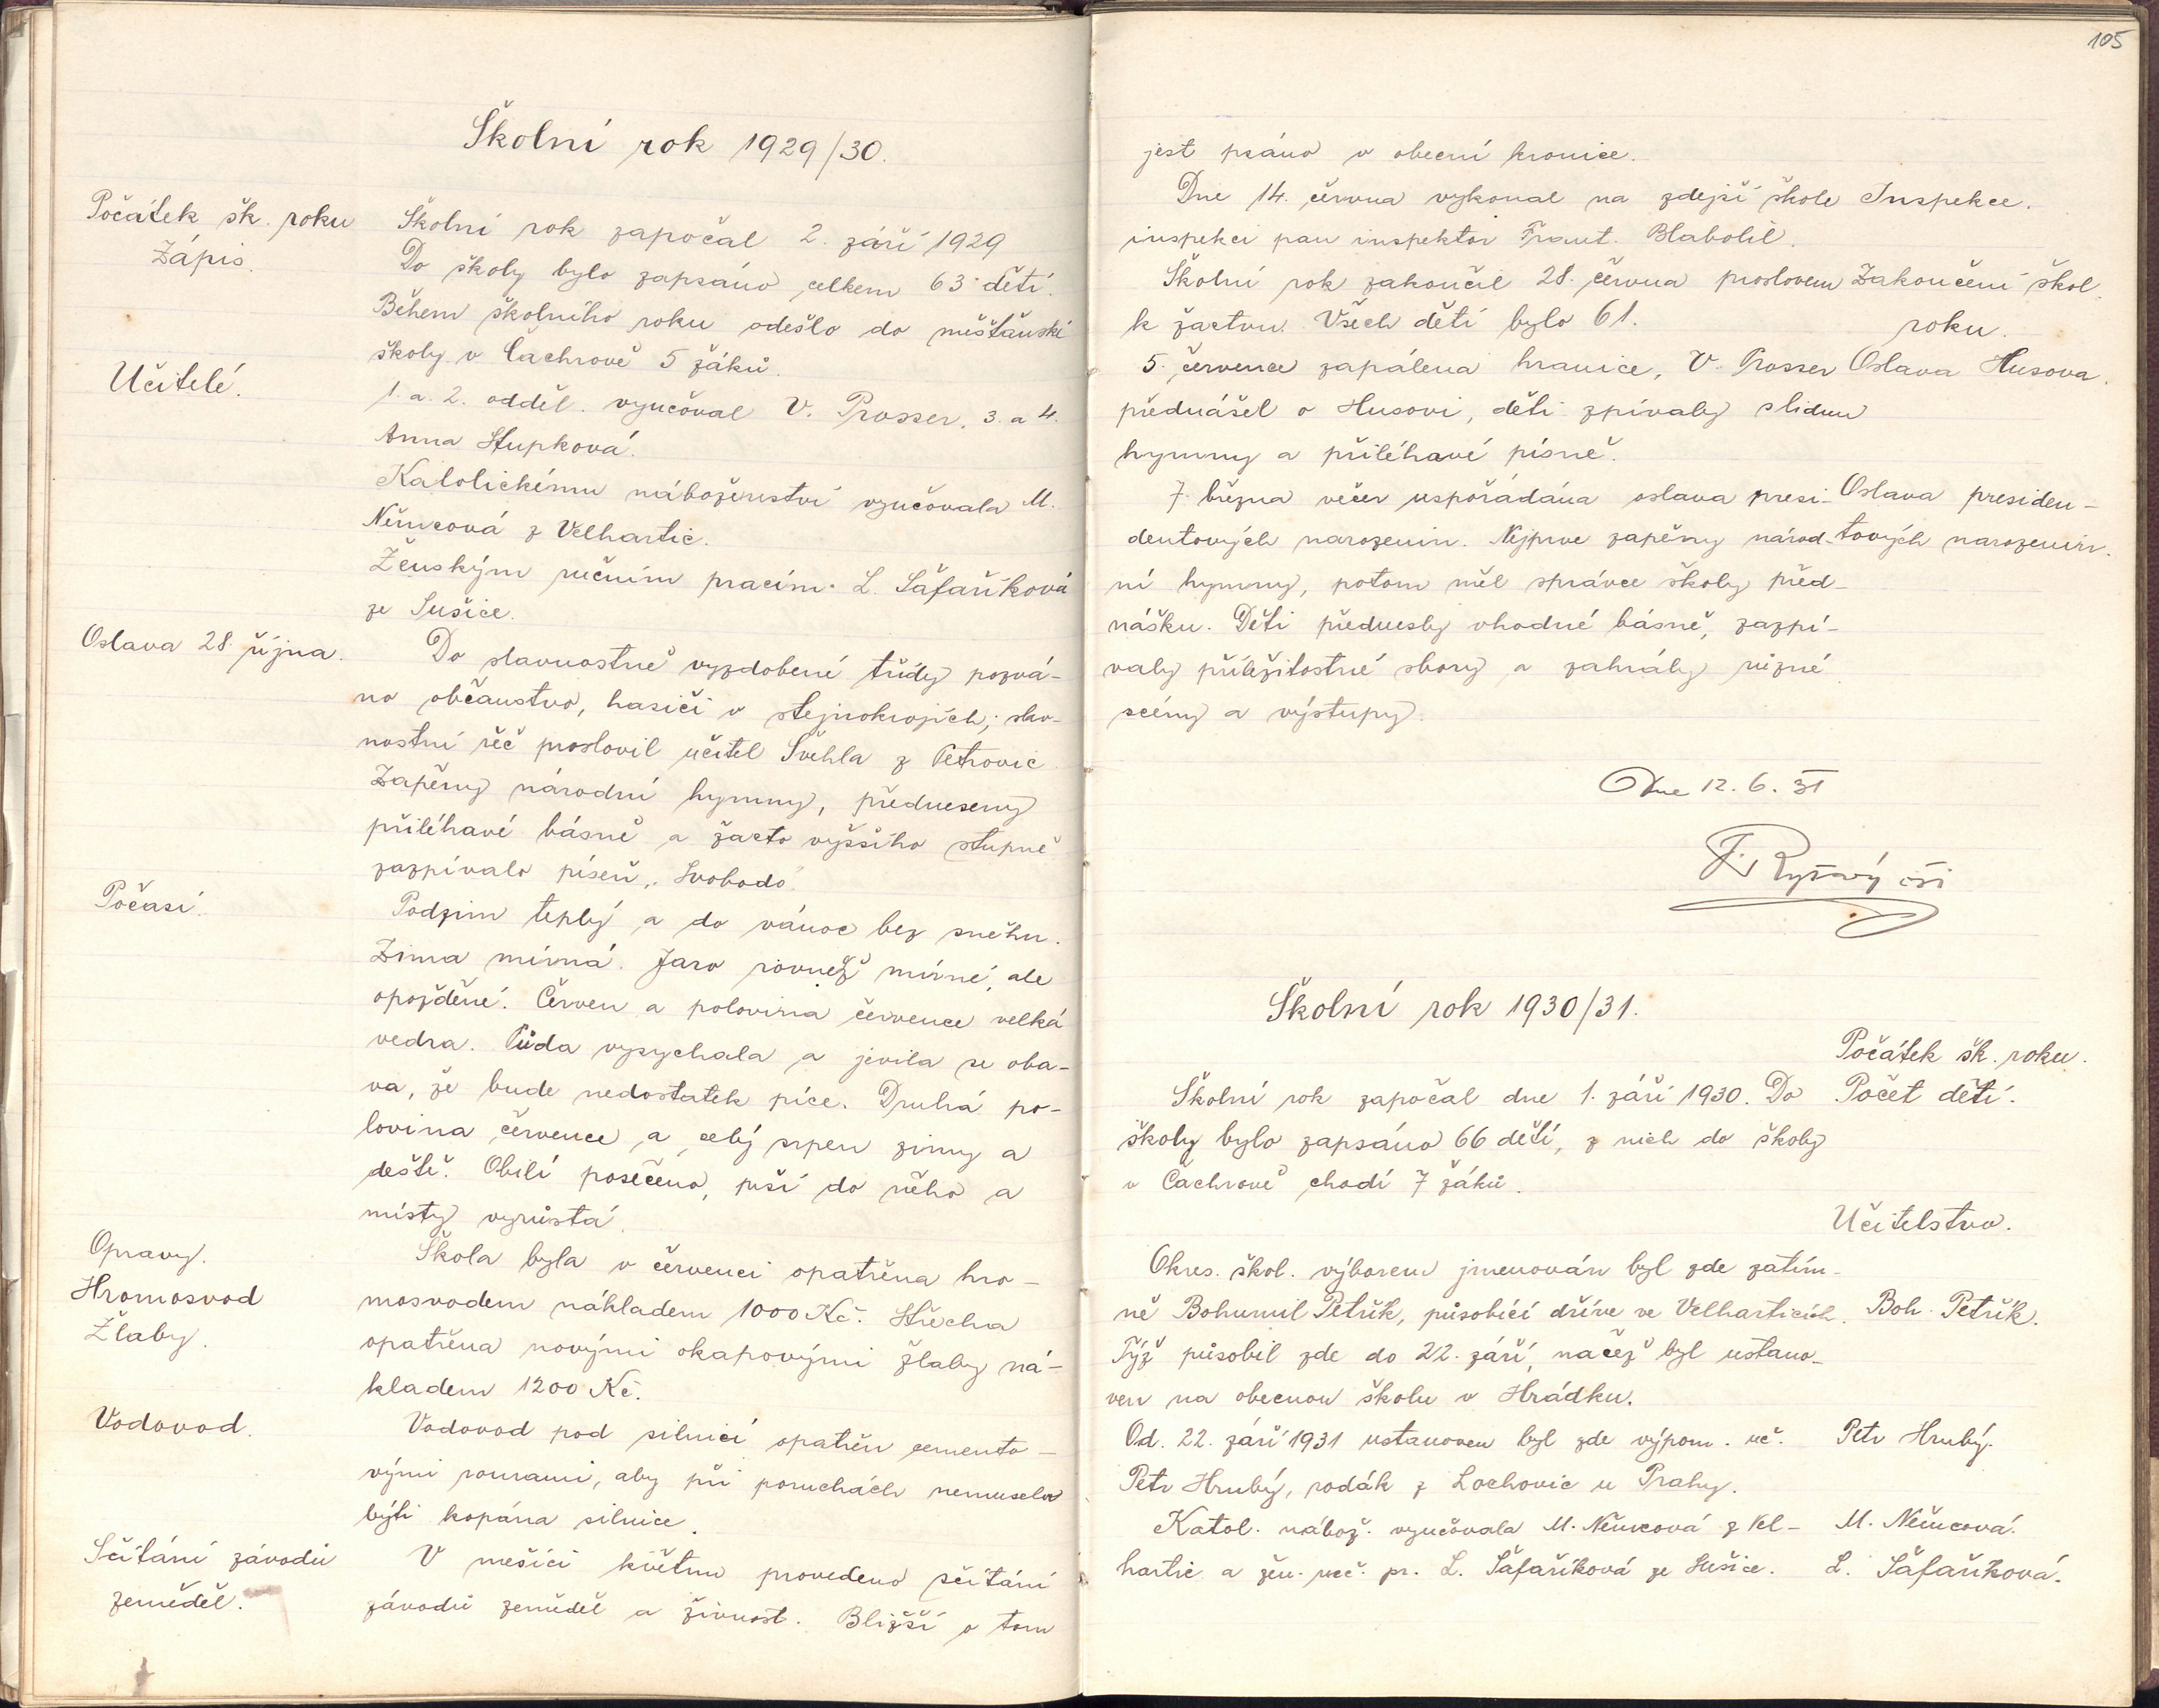 105
Školní rok 1929/30.
Počátek šk. roku
Zápis.
Školní rok započal 2. září 1929
Do školy bylo zapsáno celkem 63 dětí.
Během školního roku odešlo do měšťanské
školy v Čachrově 5 žáků.
Učitelé.
1. a 2. odděl. vyučoval V. Prosser, 3. a 4.
Anna Stupková.
Katolickému náboženství vyučovala M.
Němcová z Velhartic.
Ženským ručním pracím L. Šafaříková
ze Sušice.
Oslava 28. října.
Do slavnostně vyzdobené třídy pozvá-
no občanstvo, hasiči v stejnokrojích; slav-
nostní řeč proslovil učitel Švehla z Petrovic
Zapěny národní hymny, předneseny
přiléhavé básně a žactvo vyššího stupně
zazpívalo píseň „Svobodo".
Počasí.
Podzim teplý a do vánoc bez sněhu.
Zima mírná. Jaro rovněž mírné, ale
opožděné. Červen a polovina července velká
vedra. Půda vysychala a jevila se oba-
va, že bude nedostatek píce. Druhá po-
lovina července a celý srpen zimy a
deště. Obilí posečeno, prší do něho a
místy vyrůstá.
Opravy.
Hromosvod
Žlaby.
Škola byla v červenci opatřena hro-
mosvodem nákladem 1000 Kč. Střecha
opatřena novými okapovými žlaby ná-
kladem 1200 Kč.
Vodovod.
Vodovod pod silnicí opatřen cemento-
vými rourami, aby při poruchách nemusela
býti kopána silnice.
Sčítání závodů
zeměděl.
V měsíci květnu provedeno sčítání
závodů zeměděl a živnost. Bližší o tom
jest psáno v obecní kronice.
Dne 14. června vykonal na zdejší škole
Inspekce.
inspekci pan inspektor Frant. Blabolil.
Školní rok zakončil 28. června proslovem
Zakončení škol.
roku.
k žactvu. Všech dětí bylo 61.
5. července zapálena hranice, V. Prosser
Oslava Husova.
přednášel o Husovi, děti zpívaly s lidem
hymny a přiléhavé písně.
7. března večer uspořádána oslava presi-
Oslava presiden-
tových narozenin.
dentových narozenin. Nejprve zapěny národ-
ní hymny, potom měl správce školy před-
nášku. Děti přednesly vhodné básně, zazpí-
valy příležitostné sbory a zahrály různé
scény a výstupy.
Dne 12. 6. 31
Školní rok 1930/31.
Počátek šk. roku.
Počet dětí.
Školní rok započal dne 1. září 1930. Do
školy bylo zapsáno 66 dětí, z nich do školy
v Čachrově chodí 7 žáků.
Učitelstvo.
Okres. škol. výborem jmenován byl zde zatím-
ně Bohumil Petřík, působící dříve ve Velharticích.
Boh. Petřík.
Týž působil zde do 22. září, načež byl ustano-
ven na obecnou školu v Hrádku.
Od. 22. září 1931 ustanoven byl zde výpom. uč.
Petr Hrubý.
Petr Hrubý, rodák z Lochovic u Prahy.
Katol. nábož. vyučovala M. Němcová z Vel-
M. Němcová.
hartic a žen. ruč. pr. L. Šafaříková ze Sušice.
L. Šafaříková.